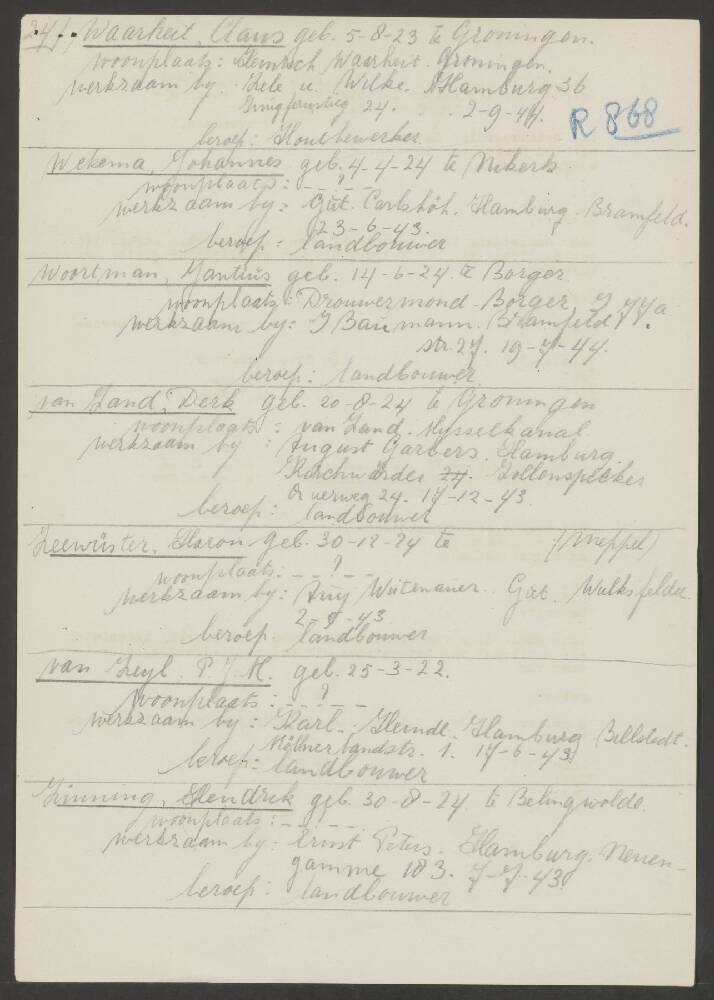 24/. Waarheit, Claus geb. 5-8-23 te Groningen.
woonplaats: Heinrich Waarheit. Groningen.
werkzaam by. Zele u. Wilke. Hamburg 36
Jungfernstieg 24. 2-9-44.
R 868
beroep: Houtbewerker
Wekema, Johannes geb. 4-4-24 te Nikerk
woonplaats: - - ? - -
werkzaam by: Gut. Carlshöh. Hamburg. Bramfeld.
23-6-43.
beroep: landbouwer
Woortman, Jantinus geb. 14-6-24 te Borger
woonplaats: Drouwermond. Borger
werkzaam by: J Baumann. Bramfeld
str. 27. 19-7-44.
beroep: landbouwer
van Zand, Derk geb. 20-8-24 te Groningen
woonplaats: van Zand. Musselkanal
werkzaam by: August Garbers. Hamburg.
Kirchwärder 24. Zollenspieker
weg 24. 17-12-43.
beroep: landbouwer
Zeewüster, Haron geb. 30-12-24 te (Meppel)
woonplaats: - - ? - -
werkzaam by: Gut. Wulksfelde
2-9-43
beroep landbouwer
van Zeyl. P. J. M. geb. 25-3-22.
woonplaats: - - ? - -
werkzaam by: Karl. Herndl. Hamburg Billstedt.
Möllner landstr. 1. 17-6-43
beroep: landbouwer
Zinning, Hendrek geb. 30-8-24 te Belingwolde.
woonplaats: - - - -
werkzaam by: Ernst Peters. Hamburg. Neuen-
gamme 183. 7-7-43
beroep: landbouwer